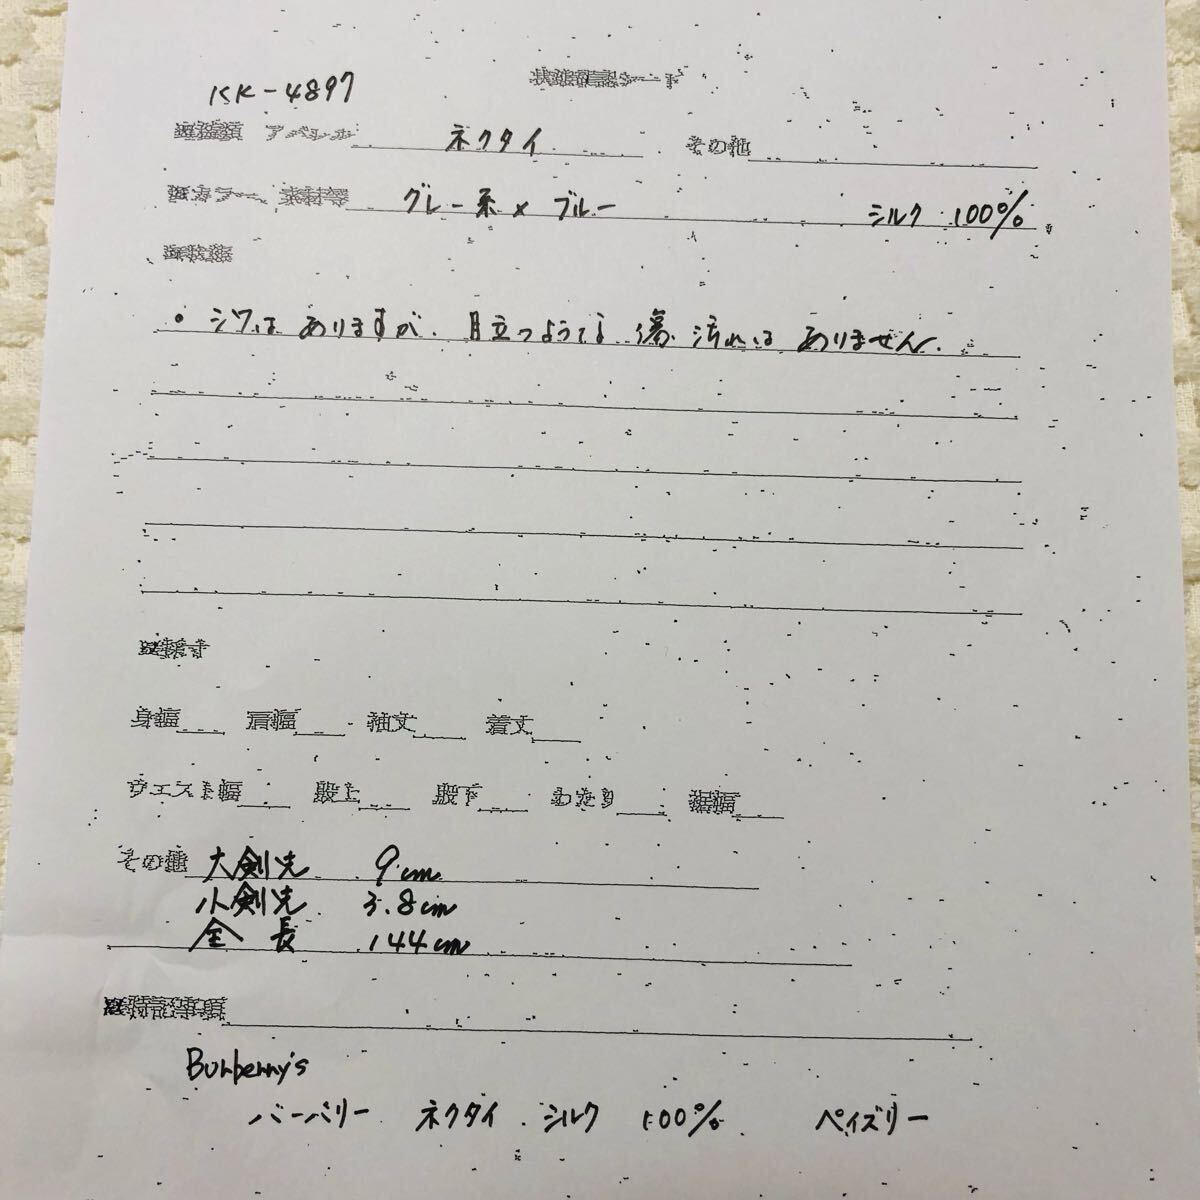 状態確認シート
KK-4897
アパレル ネクタイ その他
カラー、素材等 グレー系×ブルー シルク 100%
※状態
・シワはありますが、目立つような傷、汚れはありません。
※採寸
身幅 肩幅 袖丈 着丈
ウエスト幅 股上 股下 わたり 裾幅
その他 大剣先 9cm
小剣先 3.8cm
全長 144cm
※特記事項
Burberry's
バーバリー ネクタイ シルク 100% ペイズリー